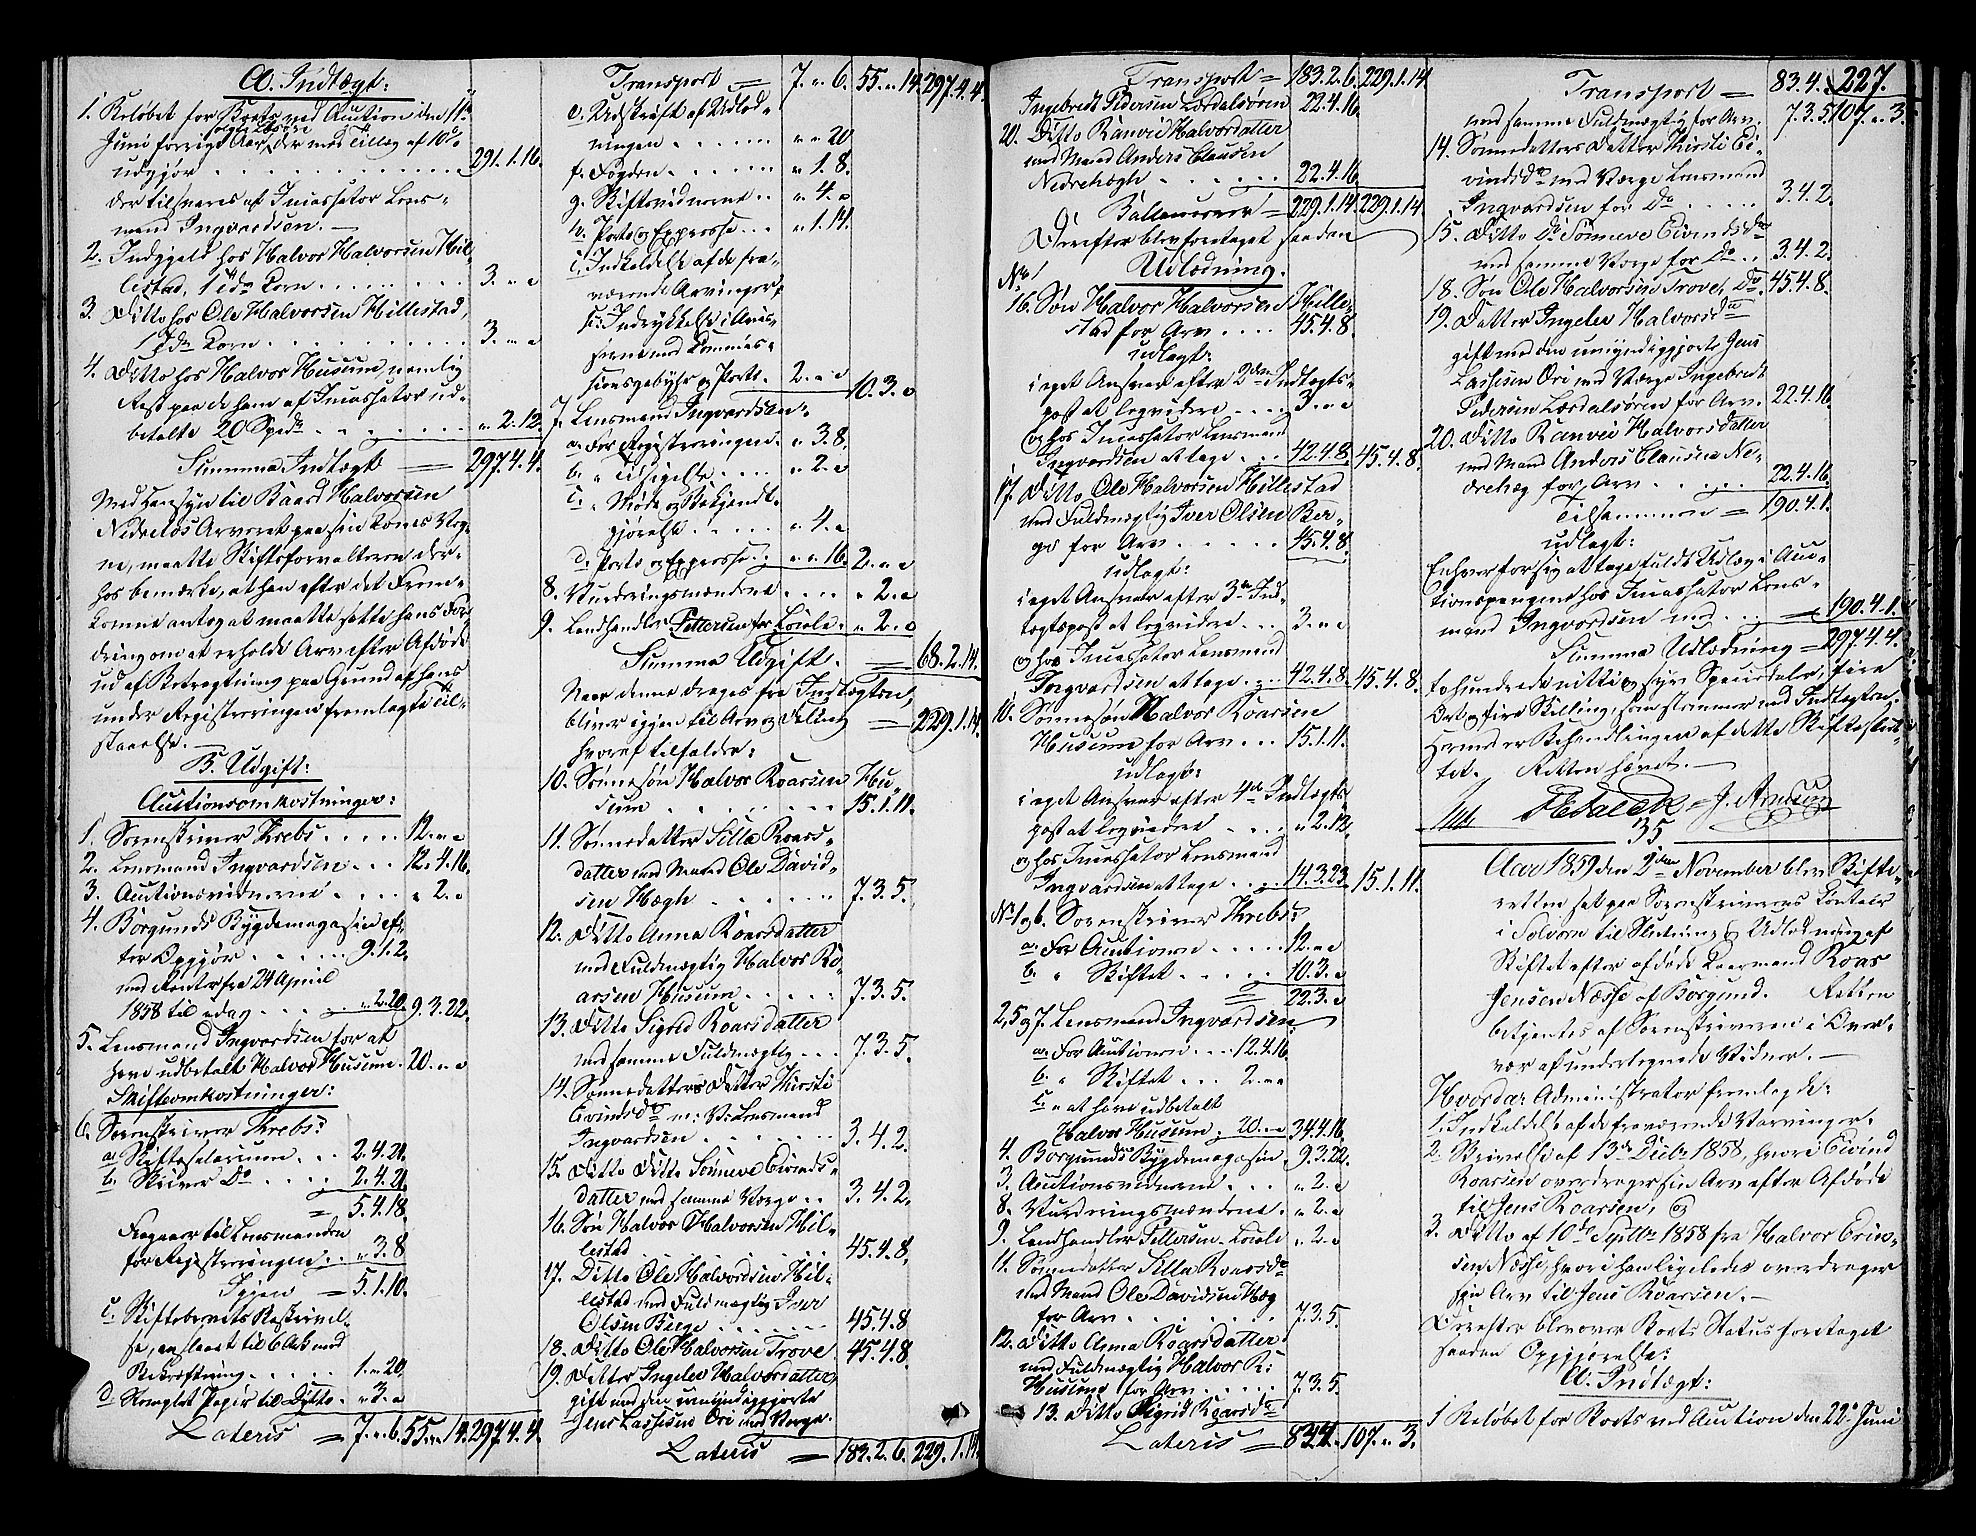 A. Indtægt:
1. Beløbet for Boets ved Auction den 11te
Juni forrige Aar solgte Løsøre der med Tillæg af 10 %
udgjør . . . 291.1.16.
der tilsvares af Incassator Lens-
mand Ingvardsen. —
2. Indgjæld hos Halvor Halvorsen Hil-
lestad, 1 Tde Korn . . . 3. " "
3. Ditto hos Ole Halvorsen Hillestad,
1 Tde Korn . . . 3. " "
4. Ditto hos Halvor Husum, nemlig
Rest paa de ham af Incassator ud-
betalte 20 Spd . . . " 2.12.
Summa Indtægt — 297.4.4.
Med Hensyn til Baard Halvorsen
Nedrelos Arveret paa sin Kones Veg-
ne, maatte Skifteforvalteren der-
hos bemærke, at han efter det Frem-
komne antog at maatte sætte hans For-
dring om at erholde Arv efter Afdøde
ud af Betragtning paa Grund af hans
under Registreringen fremlagte Til-
staaelse. —
B. Udgift:
Auctionsomkostninger:
1. Sorenskriver Krebs . . . 12. " "
2. Lensmand Ingvardsen . . . 12.4.16.
3. Auctionsvidnerne . . . " 2. "
4. Borgunds Bygdemagasin ef-
ter Opgjør . . . 9.1.2.
med Renter fra 24 April
1858 til idag . . . " 2.20. 9.3.22.
5. Lensmand Ingvardsen for at
have udbetalt Halvor Husum . 20. " "
Skifteomkostninger:
6. Sorenskriver Krebs:
a. Skiftesalarium . . . 2.4.21.
b. Skriver Do . . . 2.4.21.
= 5.4.18.
Fragaaer til Lensmanden
for Registreringen . . " 3.8
Igjen = 5.1.10.
c. Skiftebrevets Beskrivel-
se, anslaaet til 6 Ark med
Bekræftning . . . 1. " 20.
d. Stemplet Papir til Ditto . " 3. "
Lateris = 7. " 6. 55. " 14. 297.4.4.
Transport = 7. " 6. 55. " 14. 297.4.4.
e. Udskrift af Udlod-
ningen . . . " " 20
f. Fogden . . . " 1.8.
g. Skiftevidnerne . . " 4. "
h. Porto og Expresse . . . " 1.14.
i. Indkaldelse af de fra-
værende Arvinger,
k. Indrykkelse i Avis-
serne med Commis-
sionsgebyhr og Porto . 2. " " 10.3. "
7. Lensmand Ingvardsen:
a. for Registreringen . " 3.8.
b. " Tilsigelse . . . " 2. "
c. " Møde og Bekjendt-
gjørelse . . . " 4. "
d. Porto og Expresse . . " " 16. 2. " "
8. Vurderingsmændene . . . " 2. "
9. Landhandler Pettersen for Loiele . " 2. "
Summa Udgift. = 68.2.14.
Naar denne drages fra Indtægten,
bliver igjen til Arv og Deling = 229.1.14.
hvoraf tilfalder:
10. Sønnesøn Halvor Roarsen Hu-
sum . . . 15.1.11.
11. Sønnedatter Silla Roars-
datter med Mand Ole David-
sen Hægh . . . 7.3.5.
12. Ditto Anna Roarsdatter
med Fuldmægtig Halvor Ro-
arsen Husum . . . 7.3.5.
13. Ditto Sigrid Roarsdatter
med samme Fuldmægtig . . . 7.3.5.
14. Sønnedatters Datter Kirsti
Eivindsdr m: V: Lensmand
Ingvardsen . . . 3.4.2.
15. Ditto Ditto Sønneve Eivinds-
datter med samme Værge . . 3.4.2.
16. Søn Halvor Halvorsen Hil-
lestad . . . 45.4.8.
17. Ditto Ole Halvorsen Hil-
lestad med Fuldmægtig Iver
Olsen Berge . . . 45.4.8
18. Ditto Ole Halvorsen Trove . 45.4.8.
19. Datter Ingelev Halvorsdatter
gift med den umyndiggjorte
Jens Lassesen Øri med Værge.
Lateris = 183.2.6. 229.1.14.
Transport = 183.2.6. 229.1.14.
Ingebreth Pedersen Lærdalsøren 22.4.16.
20. Ditto Ranvei Halvorsdatter
med Mand Anders Clausen
Nedrehægh . . . 22.4.16.
Ballancerer = 229.1.14. 229.1.14.
Derefter blev foretaget saadan
Udlodning.
No 1
16. Søn Halvor Halvorsen Hille-
stad for Arv . . . 45.4.8.
udlagt:
i eget Ansvar efter 2den Indtægts-
post at liqvidere . . . 3. " "
og hos Incassator Lensmand
Ingvardsen at tage . . . 42.4.8. 45.4.8.
17. Ditto Ole Halvorsen Hillestad
med Fuldmægtig Iver Olsen Ber-
ge for Arv . . . 45.4.8.
udlagt:
i eget Ansvar efter 3die Ind-
tægtspost at liqvidere . . . 3. " "
og hos Incassator Lensmand
Ingvardsen at tage . . . 42.4.8. 45.4.8.
10. Sønnesøn Halvor Roarsen
Husum for Arv . . . 15.1.11.
udlagt:
i eget Ansvar efter 4de Indtægts-
post at liqvidere . . . " 2.12.
og hos Incassator Lensmand
Ingvardsen at tage . . . 14.3.23. 15.1.11.
No 1 og 6. Sorenskriver Krebs:
a. For Auctionen . . . 12. " "
b. " Skiftet . . . 10.3. "
= 22.3. "
2, 5 og 7. Lensmand Ingvardsen
a. For Auctionen . . . 12.4.16.
b. " Skiftet . . . 2. " "
c. " at have udbetalt
Halvor Husum . 20. " " 34.4.16.
4. Borgunds Bygdemagasin . 9.3.22.
3. Auctionsvidnerne . . . " 2. "
8. Vurderingsmændene . . " 2. "
9. Landhandler Pettersen Loiele " 2. "
11. Sønnedatter Silla Roarsdr
med Mand Ole Davidsen Hæg
for Arv . . . 7.3.5.
12. Ditto Anna Roarsdatter
med Fuldmægtig Halvor R:
Husum for Arv . . . 7.3.5.
13. Ditto Sigrid Roarsdr
Lateris = 83.4. " 107. " 3.
227.
Transport = 83.4. " 107. " 3.
med samme Fuldmægtig for Arv . 7.3.5.
14. Sønnedatters Datter Kirsti Ei-
vindsdr med Værge Lensmand
Ingvardsen for Do . . . 3.4.2.
15. Ditto Do Sønneve Eivindsdr
med samme Værge for Do . . 3.4.2.
18. Søn Ole Halvorsen Trove, Do . 45.4.8.
19. Datter Ingelev Halvorsdr
gift med den umyndiggjorte Jens
Lassesen Øri med Værge Ingebreth
Pedersen Lærdalsøren for Arv . 22.4.16.
20. Ditto Ranvei Halvorsdatter
med Mand Anders Clausen Ne-
drehæg for Arv . . . 22.4.16.
Tilsammen = 190.4.1.
udlagt:
Enhver for sig at tage fuldt Udlæg i Auc-
tionspengene hos Incassator Lens-
mand Ingvardsen med . . . = 190.4.1.
Summa Udlodning = 297.4.4.
tohundrede nitti og syv Speciedaler, fire
Ort og fire Skilling, som stemmer med Indtægten.
Hermed er Behandlingen af dette Skifte sluttet.
Retten hævet. —
J. Arnesen
35
Aar 1859 den 2den November blev Skifte-
retten sat paa Sorenskriverens Contoir
i Solvorn til Slutning og Udlodning af
Skiftet efter afdøde Kaarmand Roar
Jensen Næsse af Borgund. Retten
betjentes af Sorenskriveren i Over-
vær af underlegnede Vidner. —
Hvorda: Administrator fremlagde:
1. Indkaldelse af de fraværende Arvinger.
2. Skrivelse af 13de Decbr 1858, hvori Eivind
Roarsen overdrager sin Arv efter Afdøde
til Jens Roarsen, og
3. Ditto af 10de Septbr 1858 fra Halvor Erik-
sen Næsse, hvori han ligeledes overdrager
sin Arv til Jens Roarsen. —
Derefter blev over Boets Status foretaget
saadan Opgjørelse:
A. Indtægt:
1 Beløbet for Boets ved Auction den 22de Juni